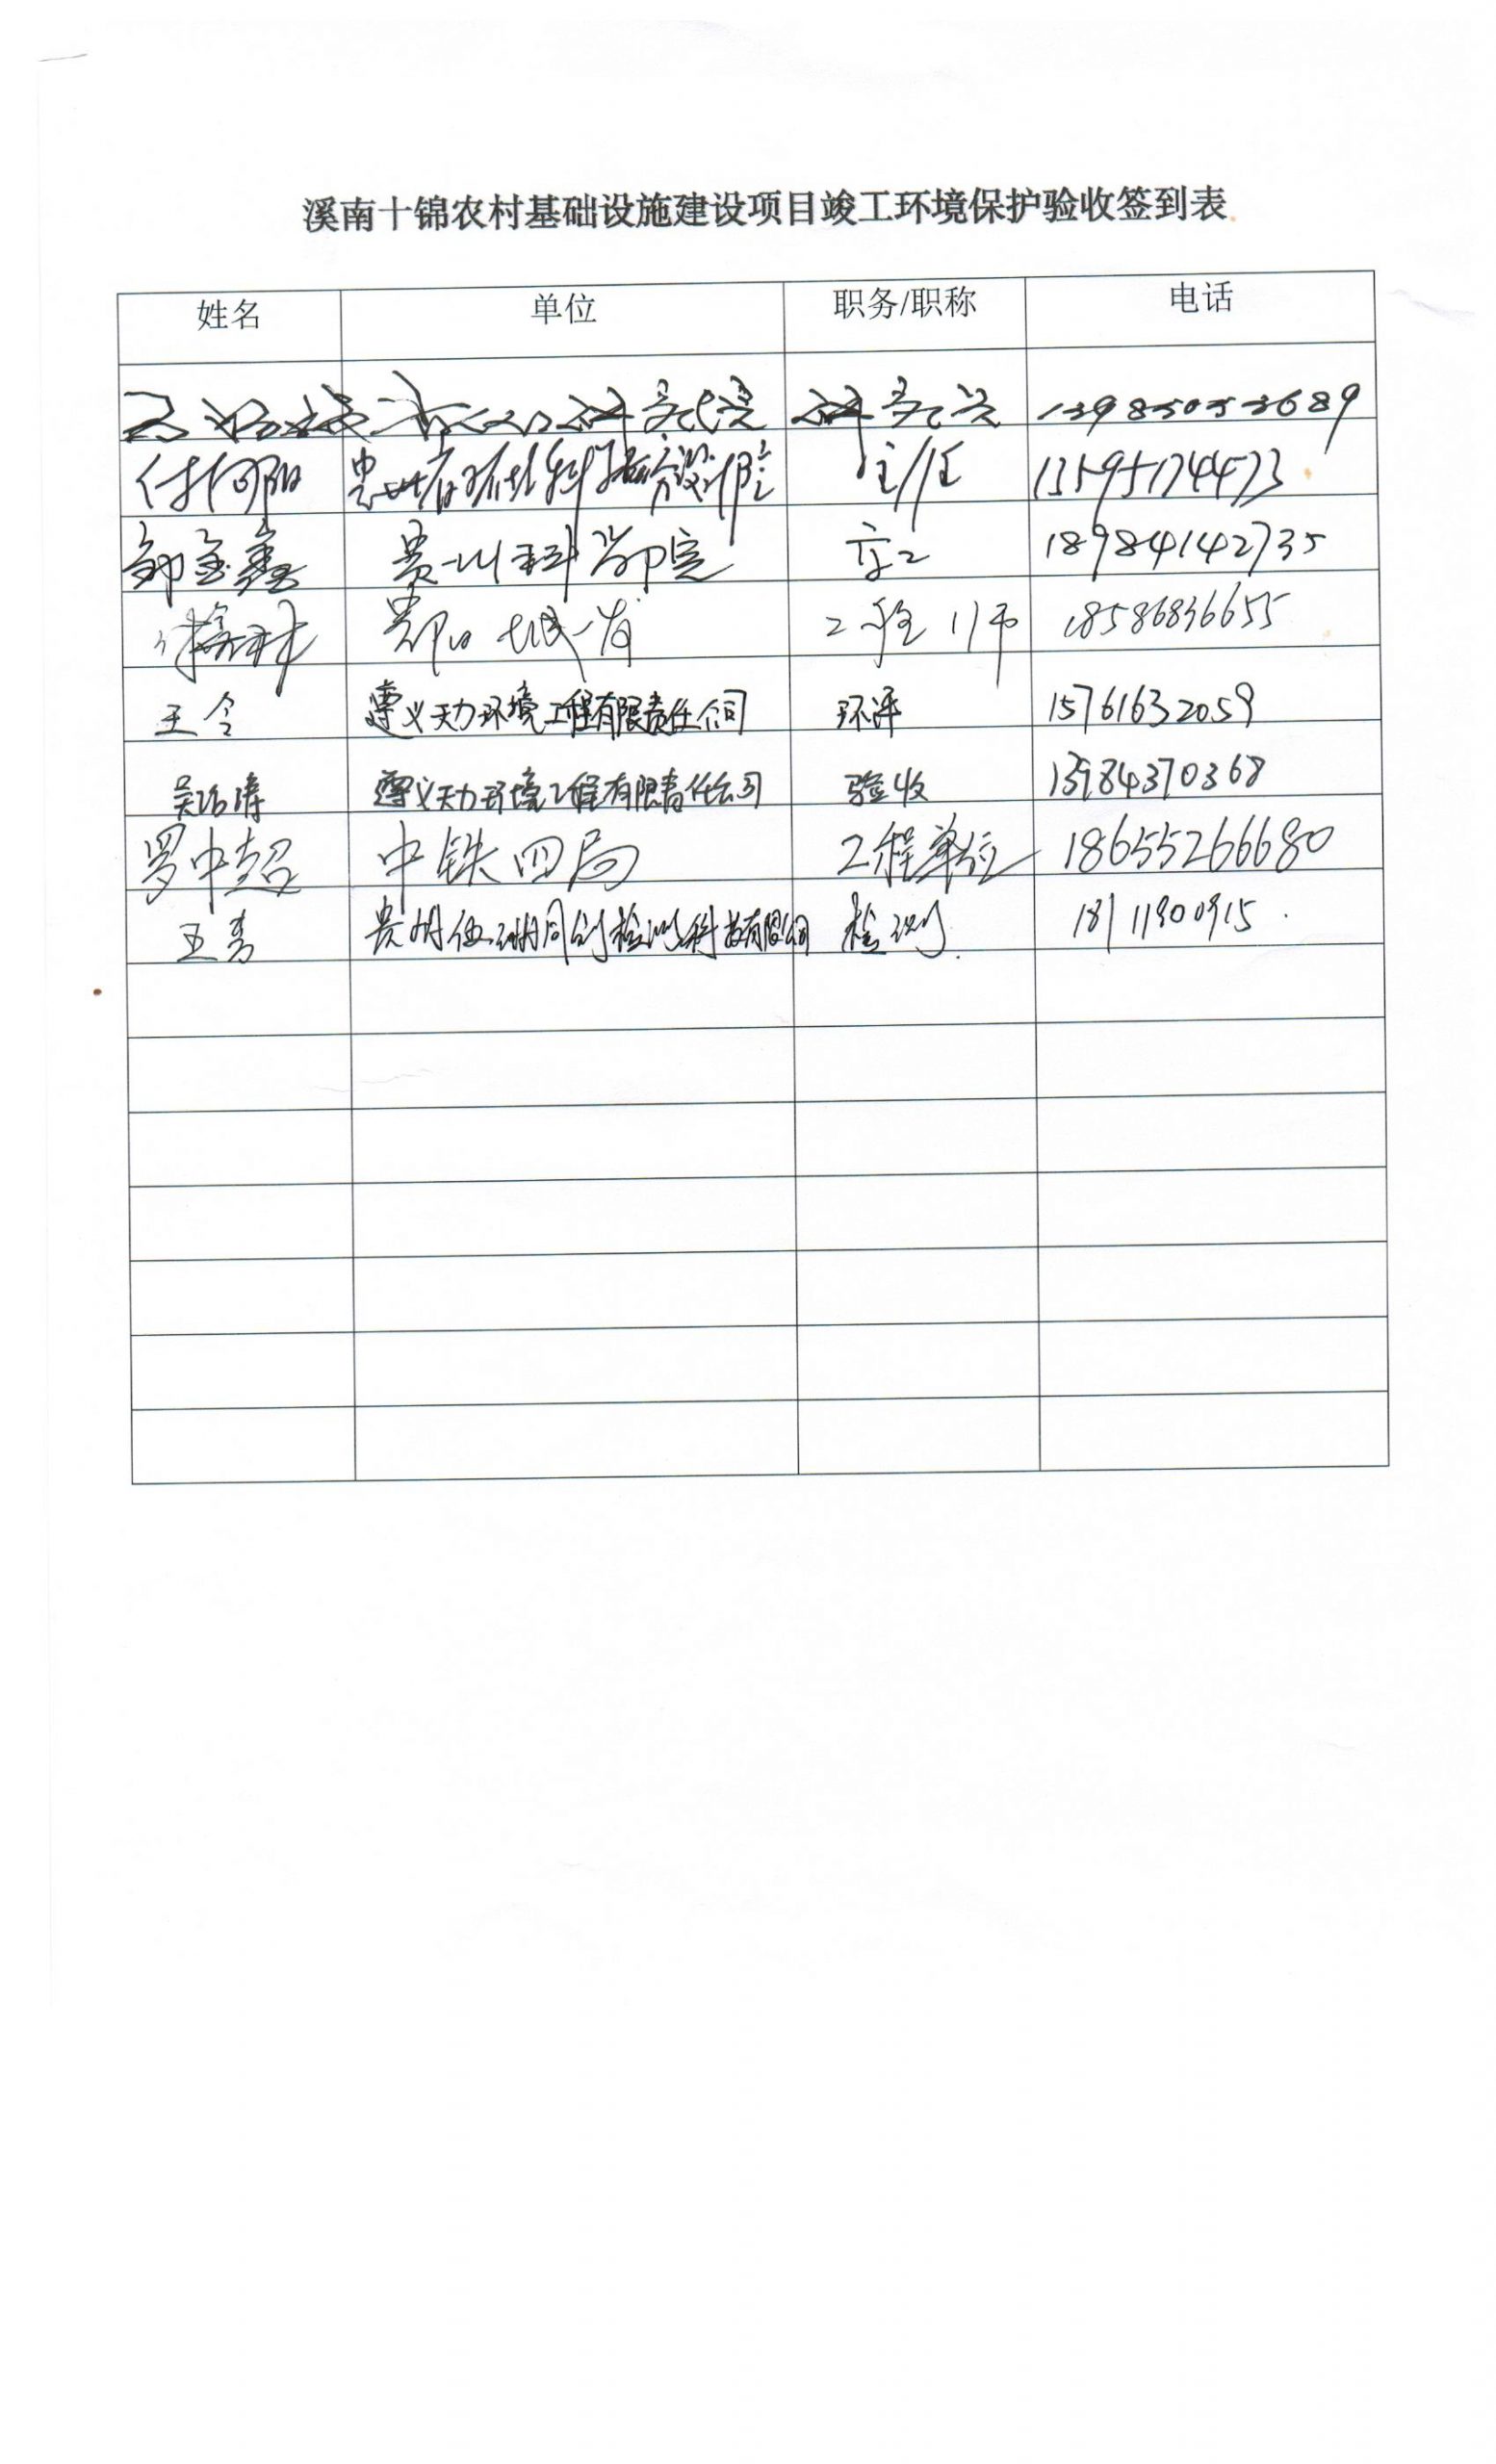 溪南十锦农村基础设施建设项目竣工环境保护验收签到表
姓名 单位 职务/职称 电话
研究院 研究员 13985053689
付向阳 贵州省环境科学研究设计院 主任 13595174473
邹金鑫 贵州科学院 高工 18984142735
贵阳城发 工程师 18586836655
王令 遵义天力环境工程有限责任公司 环评 15761632059
吴治涛 遵义天力环境工程有限责任公司 验收 13984370368
罗中超 中铁四局 工程单位 18655266680
王芳 贵州伍洲同创检测科技有限公司 检测 18111900915